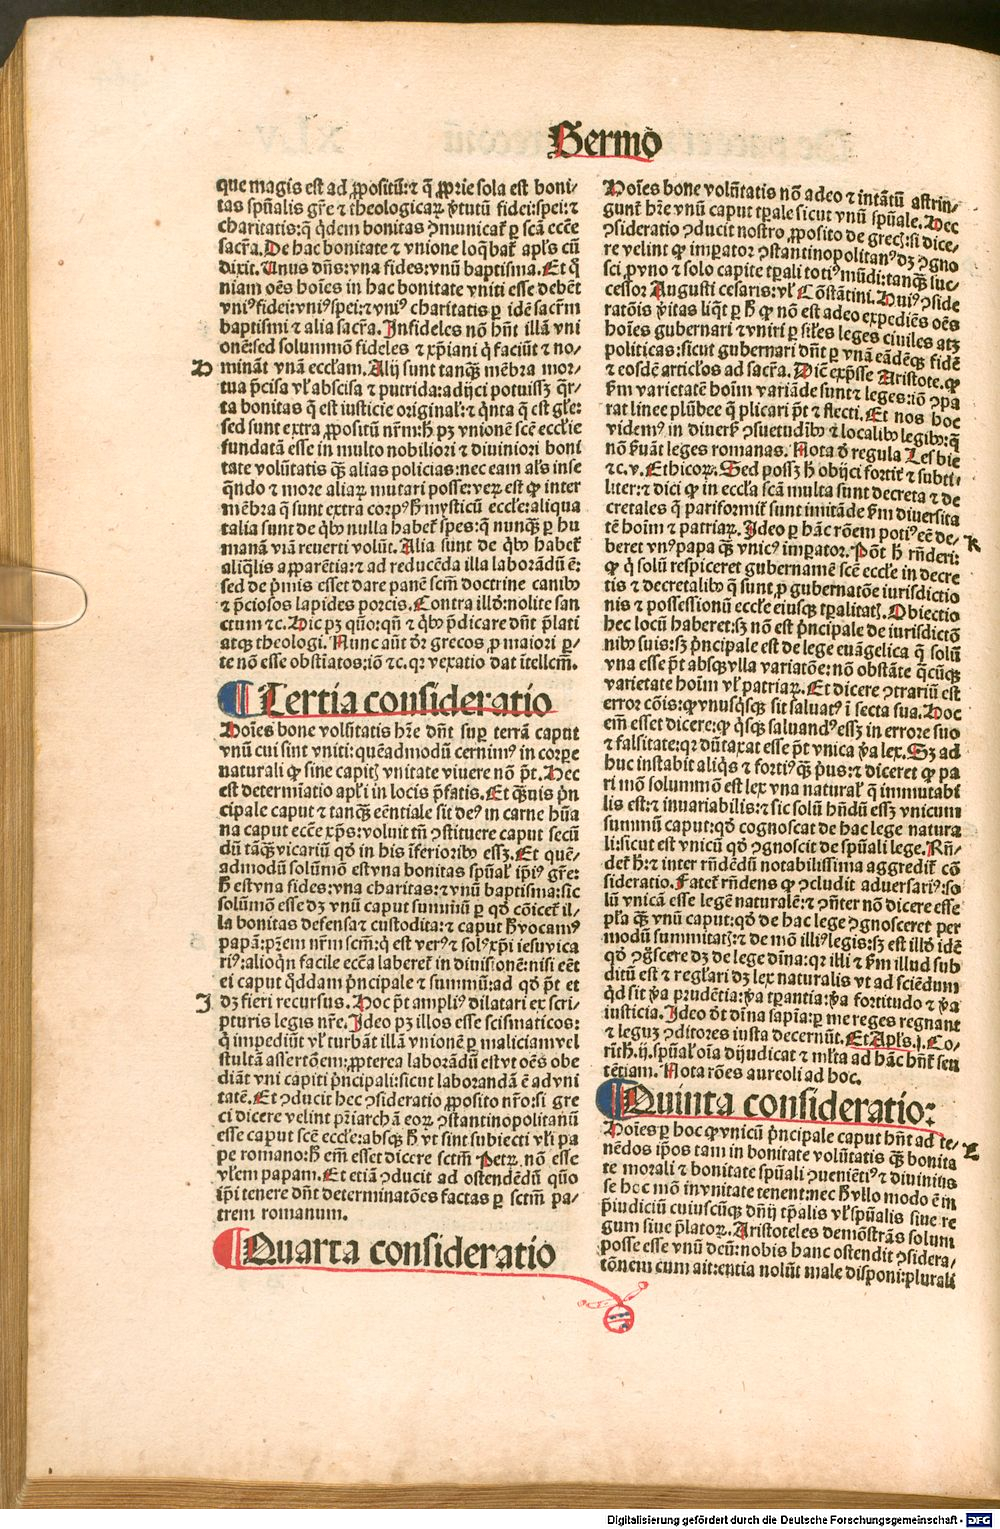 Sermo
que magis est ad ꝓpositū: ⁊ q̄ ꝓprie sola est boni-
tas spūalis gr̄e ⁊ theologicaꝝ v̓tutū fidei: spei: ⁊
charitatis: q̄ q̇dem bonitas ꝯmunicat᷑ ꝑ scā ecc̄e
sacr̄a. De hac bonitate ⁊ vnione loq̄bat᷑ apl̓s cū
dixit. Unus dn̄s: vna fides: vnū baptisma. Et q̄
niam oēs hoīes in hac bonitate vniti esse debēt
vniꝰ fidei: vniꝰ spei: ⁊ vniꝰ charitatis ꝑ idē sacr̄m
baptismi ⁊ alia sacr̄a. Infideles nō hn̄t illā vni
onē: sed solummō fideles ⁊ xp̄iani q̇ faciūt ⁊ no-
H
minā̄t vnā eccl̓am. Alij sunt tanꝗ̄ mēbra mor-
tua p̄cisa vl̓ abscisa ⁊ putrida: adijci potuissꝫ q̄r-
ta bonitas q̄ est iusticie original̓: ⁊ q̇nta q̄ est gl̓e:
sed sunt extra ꝓpositū nr̄m: h̄ pꝫ vnionē scē eccl̓ie
fundatā esse in multo nobiliori ⁊ diuiniori boni
tate volūtatis ꝗ̄ alias policias: nec eam al̓s inse
q̄ndo ⁊ more aliaꝝ mutari posse: veꝝ est ꝙ inter
mēbra q̄ sunt extra corpꝰ h̄ mysticū eccl̓e: aliqua
talia sunt de q̇bꝰ nulla habet᷑ spes: q̄ nunꝗ̄ ꝑ hu
manā viā reuerti volūt. Alia sunt de q̇bꝰ habet᷑
aliq̄lis apparētia: ⁊ ad reducēda illa laborādū ē:
sed de p̄mis esset dare panē scm̄ doctrine canibꝰ
⁊ p̄ciosos lapides porcis. Contra illd̓: nolite san
ctum ⁊c. Hic pꝫ quō: qn̄ ⁊ q̇bꝰ p̄dicare dn̄t p̄lati
atqꝫ theologi. Nunc aūt d̓r grecos ꝓ maiori ꝑ-
te nō esse obstīatos: iō ⁊c. qꝛ vexatio dat ītellcm̄.
Tertia consideratio
Hoīes bone volūtatis hr̄e dn̄t suꝑ terrā caput
vnū cui sint vniti: quēadmodū cernimꝰ in corꝑe
naturali ꝙ sine capitꝭ vnitate viuere nō p̄t. Hec
est determīatio apl̓i in locis p̄fatis. Et ꝗ̄uis p̄n
cipale caput ⁊ tanꝗ̄ eēntiale sit deꝰ in carne hūa
na caput ecc̄e xp̄s: voluit tn̄ ꝯstituere caput secū
dū tāꝗ̄ vicariū qd̓ in his īferioribꝰ essꝫ. Et quē-
admodū solūmō est vna bonitas spūal̓ ip̄iꝰ gr̄e:
h̄ est vna fides: vna charitas: ⁊ vnū baptisma: sic
solūmō esse dꝫ vnū caput summū ꝑ qd̓ cōicet᷑ il-
la bonitas defensa ⁊ custodita: ⁊ caput h̄ vocamꝰ
papā: pr̄em nr̄m scm̄: q̇ est verꝰ ⁊ solꝰ xp̄i iesu vica
riꝰ: alioqn̄ facile ecc̄a laberet᷑ in diuisionē: nisi eēt
ei caput q̄ddam p̄ncipale ⁊ summū: ad qd̓ p̄t et
I
dꝫ fieri recursus. Hoc p̄t ampliꝰ dilatari ex scri-
pturis legis nr̄e. Ideo pꝫ illos esse scismaticos:
q̇ impediūt vl̓ turbāt illā vnionē ꝑ maliciam vel
stultā assertōem: ꝓpterea laborādū est vt oēs obe
diāt vni capiti p̄ncipali: sicut laborandā ē ad vni
tatē. Et ꝯducit hec ꝯsideratio ꝓposito nr̄o: si gre
ci dicere velint pr̄iarchā eoꝝ ꝯstantinopolitanū
esse caput scē eccl̓e: absqꝫ h̄ vt sint subiecti vl̓i pa
pe romano: h̄ em̄ esset dicere sctm̄ Petꝝ nō esse
vl̓em papam. Et etiā ꝯducit ad ostendēdū quō
ip̄i tenere dn̄t determinatōes factas ꝑ sctm̄ pa-
trem romanum.
Quarta consideratio
Hoīes bone volūtatis nō adeo ⁊ intātū astrin-
gunt᷑ hr̄e vnū caput tꝑale sicut vnū spūale. Hec
ꝯsideratio ꝯducit nostro ꝓposito de grecꝭ: si dice-
re velint ꝙ imꝑator ꝯstantinopolitanꝰ dꝫ ꝯgno
sci ꝓ vno ⁊ solo capite tꝑali totiꝰ mūdi: tanꝗ̄ suc-
cessor Augusti cesaris: vl̓ Cōstātini. Huiꝰ ꝯside
ratōis v̓itas liq̄t ꝑ h̄ ꝙ nō est adeo expediēs oēs
hoīes gubernari ⁊ vniri ꝑ sil̓es leges ciuiles atqꝫ
politicas: sicut gubernari dn̄t ꝑ vnā eādēqꝫ fidē
⁊ eosdē articl̓os ad sacr̄a. Dīc̄ exp̄sse Aristote. ꝙ
ẜm varietatē hoīm variāde sunt ⁊ leges: iō ꝯpa
rat linee plūbee q̄ plicari p̄t ⁊ flecti. Et nos hoc
videmꝰ in diuersꝭ ꝯsuetudībꝰ ⁊ localibꝰ legibꝰ: q̄
nō ẜuāt leges romanas. Nota d̓ regula Lesbie
⁊c. v. Ethicoꝝ. Sed possꝫ h̄ obijci fortit᷑ ⁊ subti-
liter: ⁊ dici ꝙ in eccl̓a scā multa sunt decreta ⁊ de
cretales q̄ pariformit᷑ sunt imitāde ẜm diuersita
tē hoīm ⁊ patriaꝝ. Ideo ꝑ hāc rōem potiꝰ eē de-
K
beret vnꝰ papa ꝗ̄ vnicꝰ imꝑator. Pōt h̄ rn̄deri:
ꝙ q̇ solū respiceret gubernamē scē eccl̓e in decre
tis ⁊ decretalibꝰ q̄ sunt ꝓ gubernatōe iurisdictio
nis ⁊ possessionū eccl̓e eiusqꝫ tꝑalitatꝭ. Obiectio
hec locū haberet: sꝫ nō est p̄ncipale de iurisdictō
nibꝰ suis: sꝫ p̄ncipale est de lege euāgelica q̄ solū
vna esse p̄t absqꝫ vlla variatōe: nō obstāte q̄cūqꝫ
varietate hoīm vl̓ patriaꝝ. Et dicere ꝯtrariū est
error cōis: ꝙ vnusq̇sqꝫ sit saluatꝰ ī secta sua. Hoc
em̄ esset dicere: ꝙ q̇sqꝫ saluandꝰ essꝫ in errore suo
⁊ falsitate: qꝛ dūtaxat esse p̄t vnica v̓a lex. Sꝫ ad
huc instabit aliq̇s ⁊ fortiꝰ ꝗ̄ p̓us: ⁊ diceret ꝙ pa
ri mō solummō est lex vna natural̓ q̄ immutabi
lis est: ⁊ inuariabilis: ⁊ sic solū hn̄dū essꝫ vnicum
summū caput: qd̓ cognoscat de hac lege natura
li: sicut est vnicū qd̓ ꝯgnoscit de spūali lege. Rn̄-
det᷑ h̄: ⁊ inter rn̄dēdū notabilissima aggredit᷑ cō
sideratio. Fatet᷑ rn̄dens ꝙ ꝯcludit aduersariꝰ: so
lū vnicā esse legē naturalē: ⁊ ꝯn̄ter nō dicere esse
pl̓a ꝗ̄ vnū caput: qd̓ de hac lege ꝯgnosceret per
modū summitatꝭ: ⁊ de mō illiꝰ legis: sꝫ est illd̓ idē
qd̓ ꝯgn̓scere dꝫ de lege dīna: qꝛ illi ⁊ ẜm illud sub
ditū est ⁊ regl̓ari dꝫ lex naturalis vt ad sciēdum
q̇d sit v̓a prudētia: v̓a tꝑantia: v̓a fortitudo ⁊ v̓a
iusticia. Ideo d̓t dīna sapīa: ꝑ me reges regnant
⁊ legūꝫ ꝯditores iusta decernūt. Et Apl̓s. j. Co-
rith. ij. spūal̓ oīa dijudicat ⁊ ml̓ta ad hāc hn̄t᷑ sen
tētiam. Nota rōes aureoli ad hoc.
Quinta consideratio:
Hoīes ꝑ hoc ꝙ vnicū p̄ncipale caput hn̄t ad te-
L
nēdos ip̄os tam in bonitate volūtatis ꝗ̄ bonita
te morali ⁊ bonitate spūali ꝯueniētiꝰ ⁊ diuiniꝰ
se hoc mō in vnitate tenent: nec h̄ vllo modo ē in
p̄iudiciū cuiuscūqꝫ dn̄ij tꝑalis vl̓ spūalis siue re
gum siue p̄latoꝝ. Aristoteles demōstrās solum
posse esse vnū deū: nobis hanc ostendit ꝯsidera-
tōnem cum ait: entia nolūt male disponi: plurali
Digitalisierung gefördert durch die Deutsche Forschungsgemeinschaft - DFG